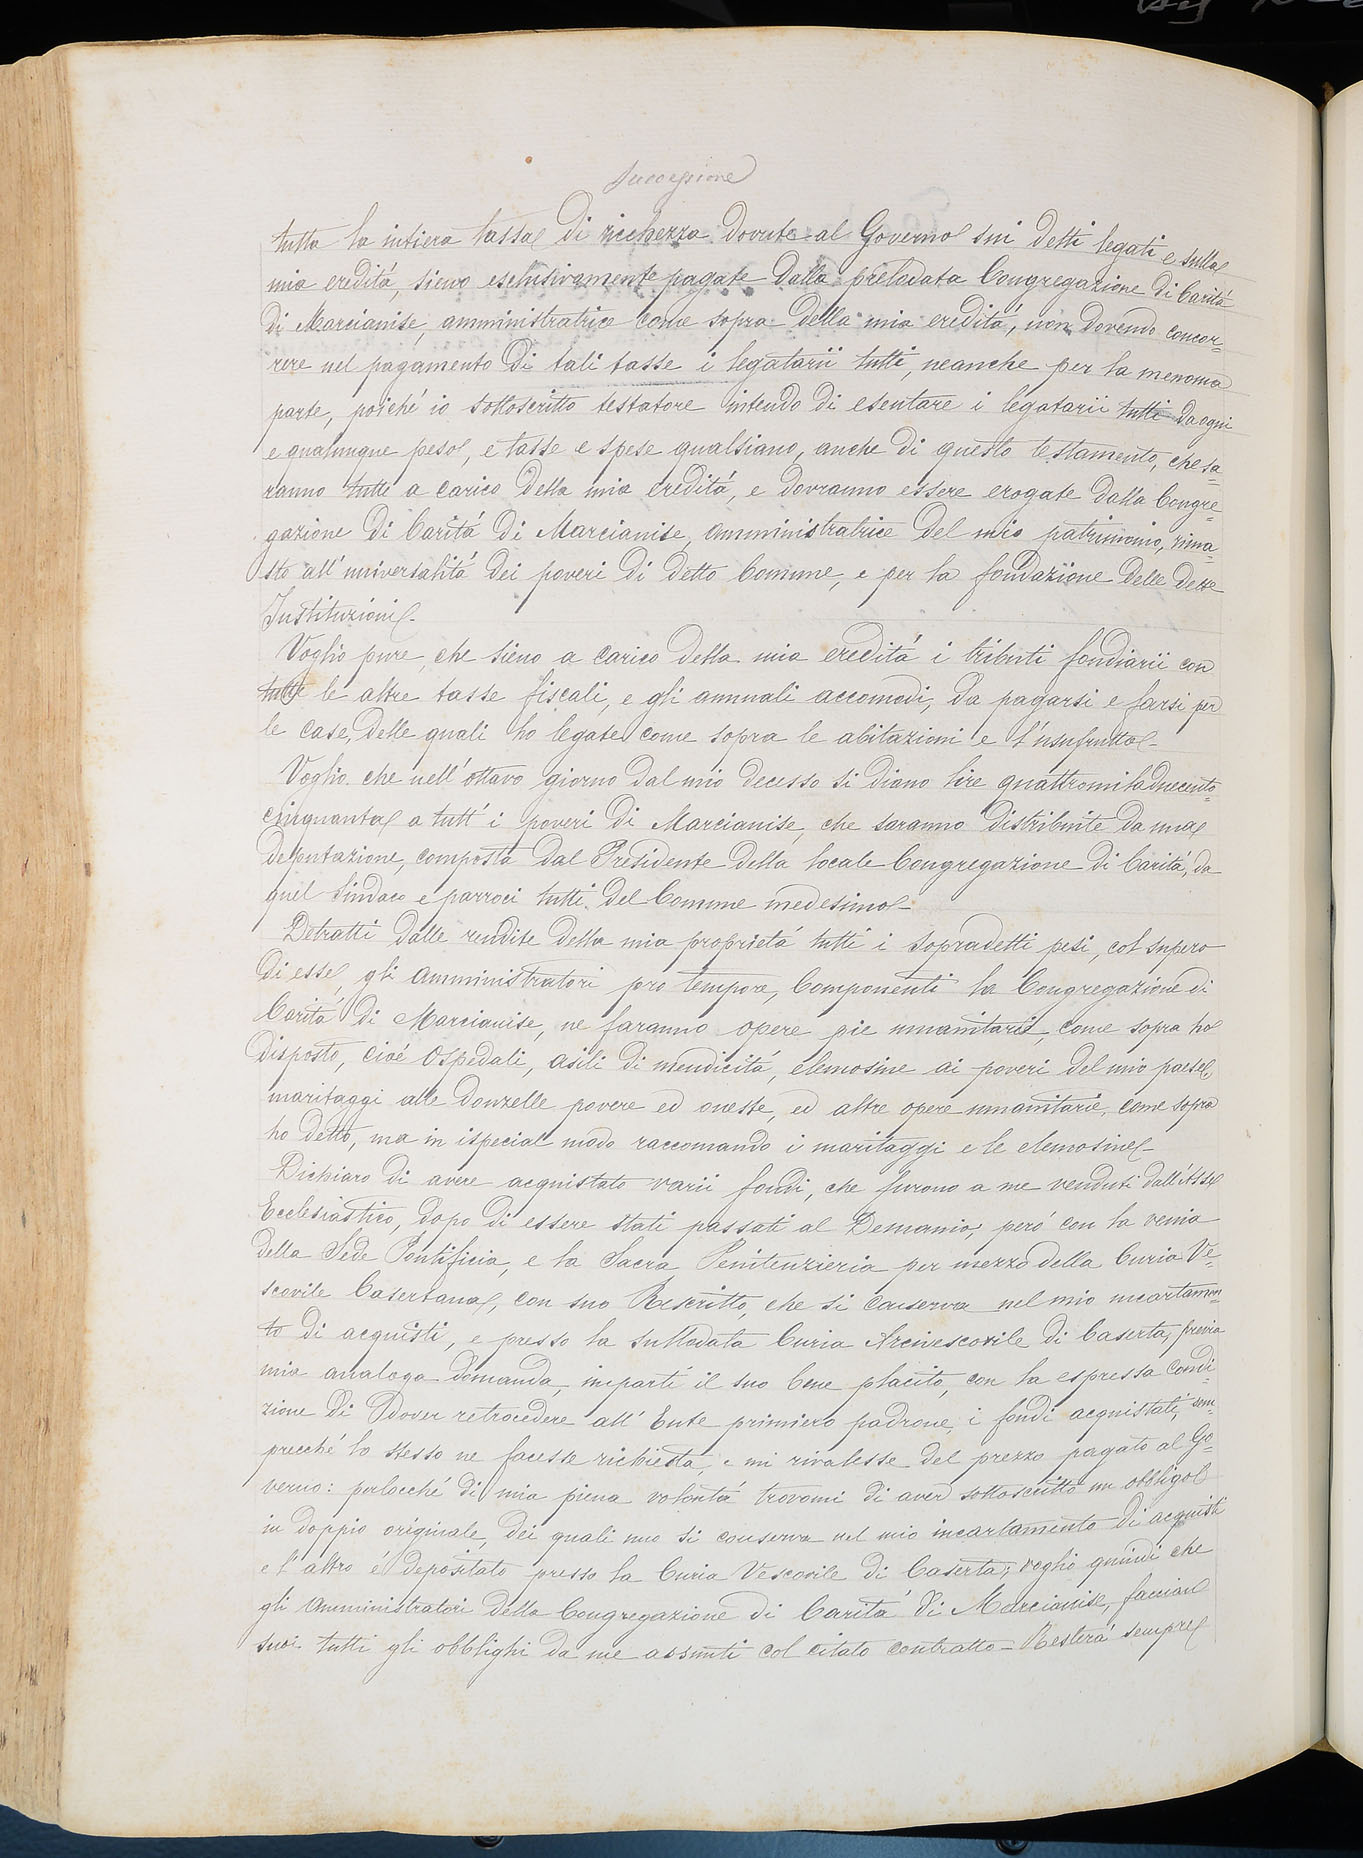 successione
tutta la intiera tassa di ricchezza dovute al Governo sui detti legati e sulla
mia eredità, sieno esclusivamente pagate dalla prelodata Congregazione di Carità
di Marcianise, amministratrice come sopra della mia eredità, non dovendo concor=
rere nel pagamento di tali tasse i legatarii tutti, neanche per la menoma
parte, poiché io sottoscritto testatore intendo di esentare i legatarii tutti da ogni
e qualunque peso, e tasse e spese qualsiano, anche di questo testamento, che sa=
ranno tutte a carico della mia eredità, e dovranno essere erogate dalla Congre=
gazione di Carità di Marcianise, amministratrice del mio patrimonio, rima=
sto all'universalità dei poveri di detto Comune, e per la fondazione delle dette
Instituzioni-
Voglio pure, che sieno a carico della mia eredità i tributi fondiarii con
tutte le altre tasse fiscali, e gli annuali accomodi, da pagarsi e farsi per
le case, delle quali ho legate come sopra le abitazioni e l'usufrutto-
Voglio che nell'ottavo giorno dal mio decesso si diano lire quattromiladuecento=
cinquanta a tutt'i poveri di Marcianise, che saranno distribuite da una
deputazione, composta dal Presidente della locale Congregazione di Carità, da
quel Sindaco e parroci tutti del Comune medesimo-
Detratti dalle rendite della mia proprietà tutti i sopradetti pesi, col supero
di esse, gli amministratori pro tempore, componenti la Congregazione di
Carità di Marcianise, ne faranno opere pie umanitarie, come sopra ho
disposto, cioè Ospedali, asili di mendicità, elemosine ai poveri del mio paese,
maritaggi alle donzelle povere ed oneste, ed altre opere umanitarie, come sopra
ho detto, ma in ispecial modo raccomando i maritaggi e le elemosine-
Dichiaro di avere acquistato varii fondi, che furono a me venduti dall'Asse
Ecclesiastico, dopo di essere stati passati al Demanio; però con la venia
della Sede Pontificia, e la Sacra Penitenzieria per mezzo della Curia Ve=
scovile Casertana, con suo Rescritto, che si conserva nel mio incartamen=
to di acquisti, e presso la sullodata Curia Arcivescovile di Caserta, previa
mia analoga domanda, impartì il suo bene placito, con la espressa condi=
zione di dover retrocedere all'Ente primiero padrone, i fondi acquistati, sem=
precché lo stesso ne facesse richiesta, e mi rivalesse del prezzo pagato al Go=
verno: perlocché di mia piena volontà trovomi di aver sottoscritto un obbligo
in doppio originale, dei quali uno si conserva nel mio incartamento di acquisti
e l'altro è depositato presso la Curia Vescovile di Caserta; voglio quindi che
gli amministratori della Congregazione di Carità di Marcianise, faccian
suoi tutti gli obblighi da me assunti col citato contratto- Resterà sempre